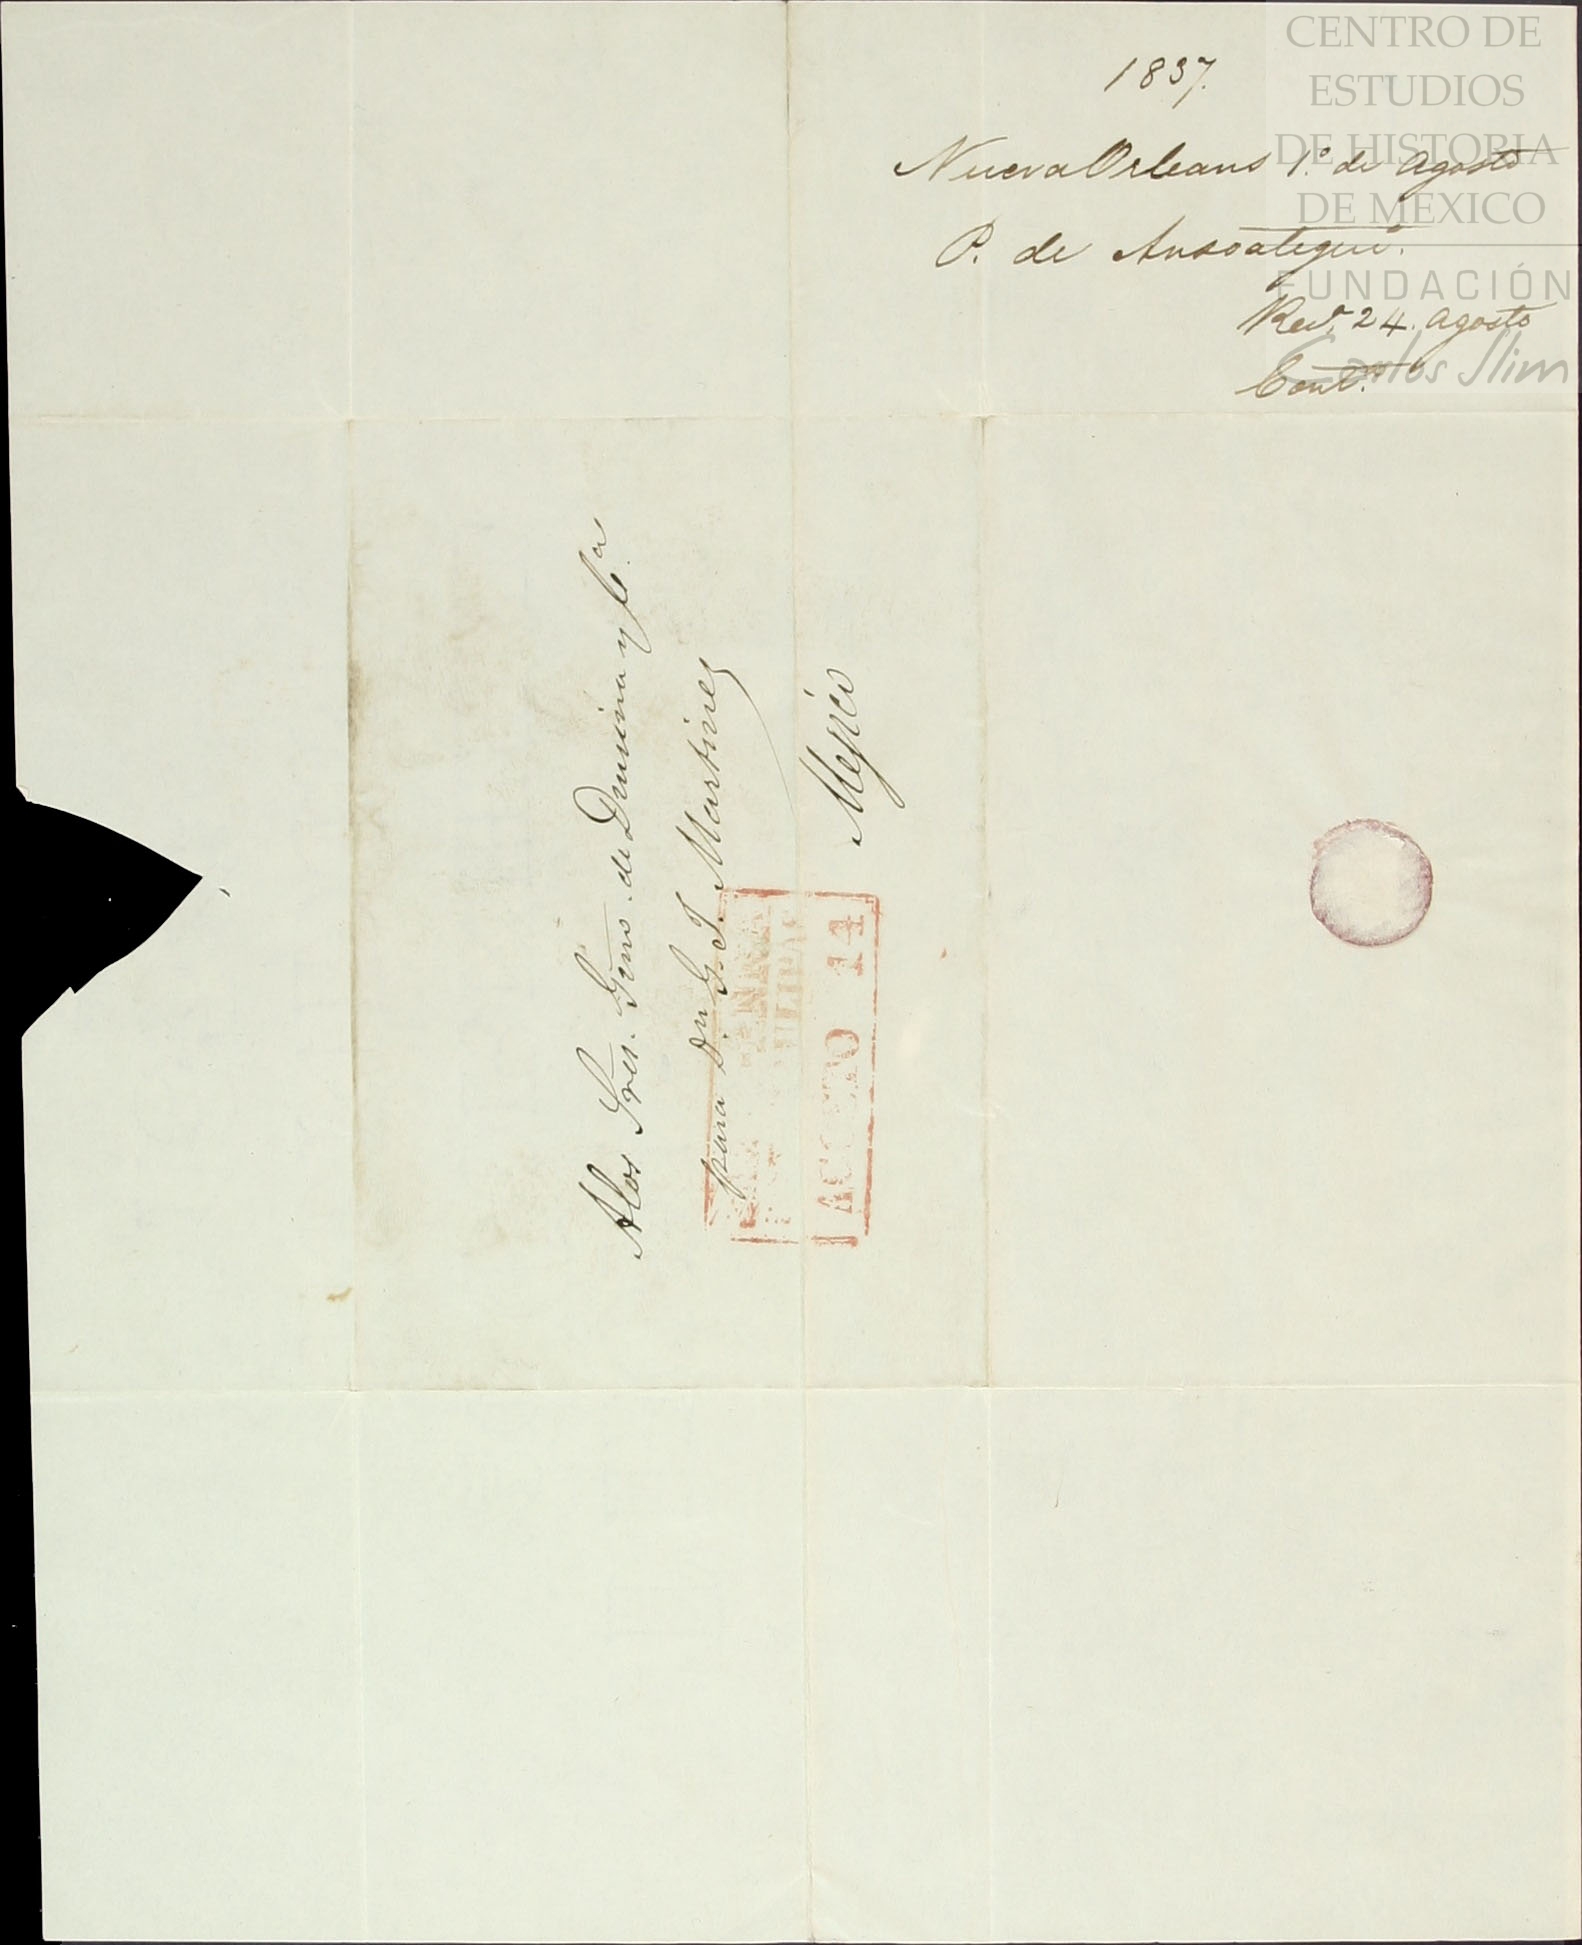 1837.
Nueva Orleans 1.º de Agosto
P. de Ansoategui.
24. Agosto
A los Sres. Gmo. de Drusina y Cª
para Dn. G. J. Martinez
Mejico
AGOSTO 14
CENTRO DE
ESTUDIOS
DE HISTORIA
DE MEXICO
FUNDACIÓN
Carlos Slim